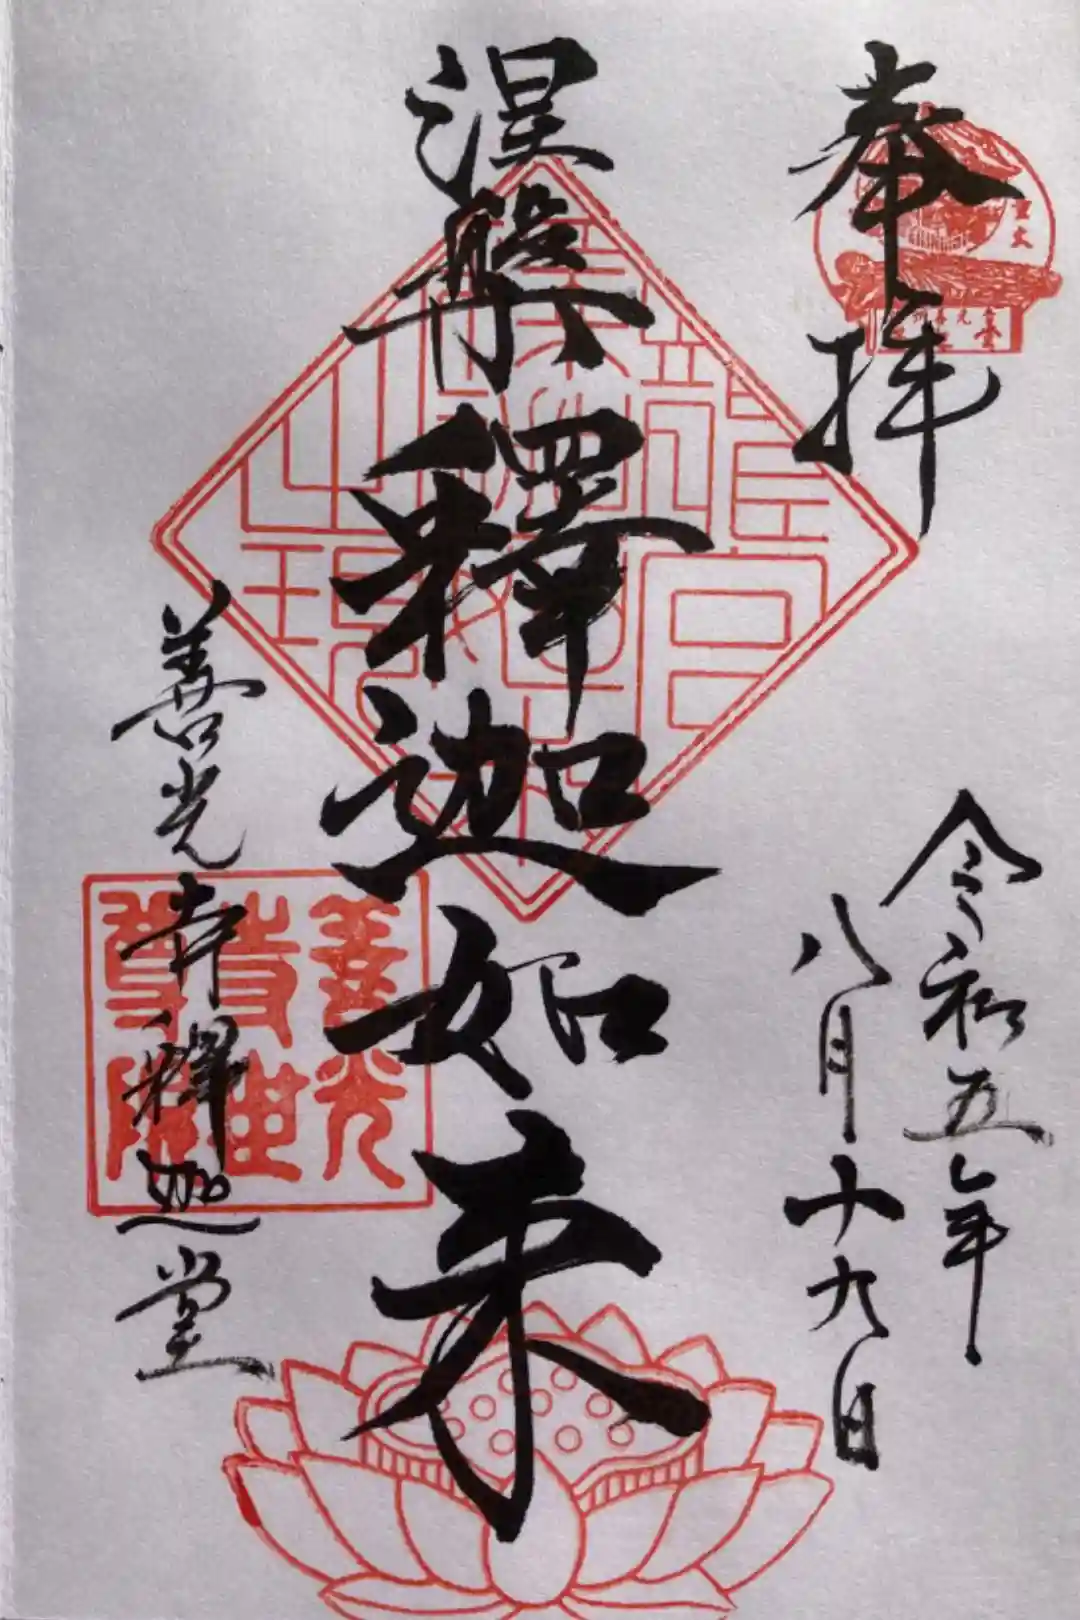 奉拝
令和五年
八月十九日
涅槃釋迦如来
善光寺釋迦堂
善光
寺世
尊院